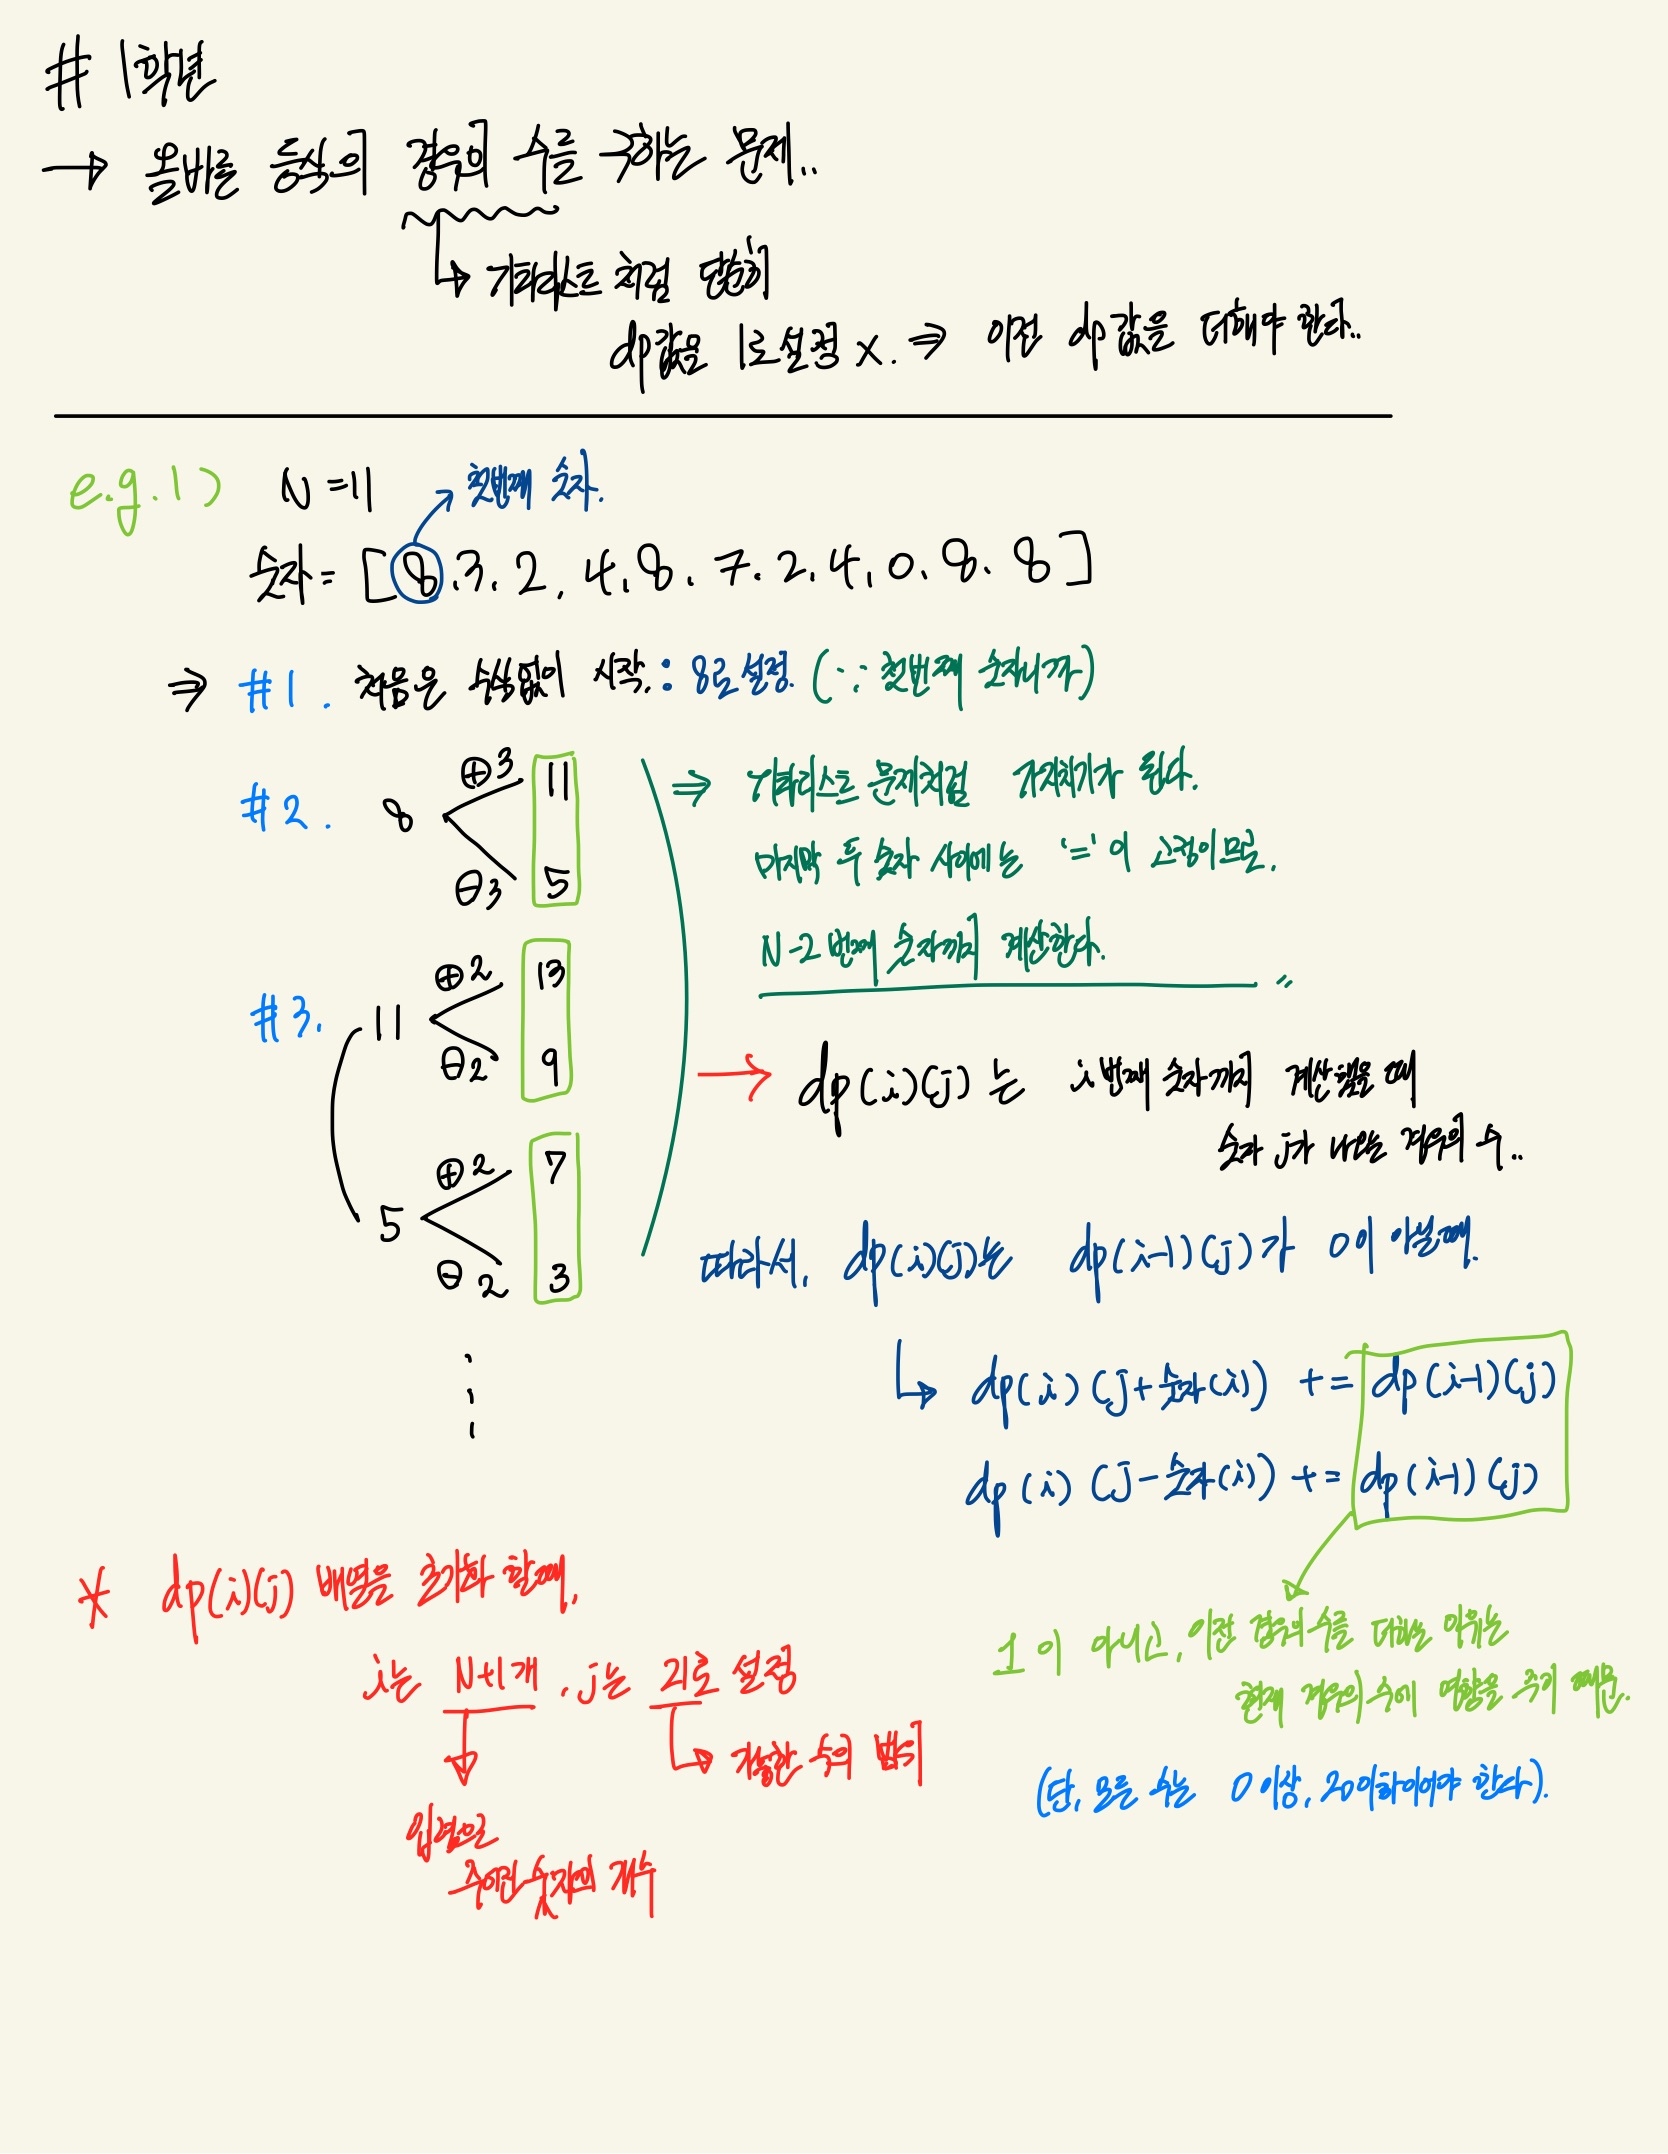 # 1학년
→ 올바른 등식의 경우의 수를 구하는 문제..
↳ 기타리스트 처럼 단순히
dp값을 1로 설정 x. ⇒ 이전 dp값을 더해야 한다..
e.g.1) N=11
첫번째 숫자.
숫자 = [8.3.2, 4.8. 7.2.4.0.8. 8]
⇒ #1. 처음은 수식없이 시작. : 8로 설정. (∵ 첫번째 숫자니까)
#2. 8 ⊕3 11
⊖3 5
⇒ 기타리스트 문제처럼 가지치기가 된다.
마지막 두 숫자 사이에는 '=' 이 고정이므로,
N-2 번째 숫자까지 계산한다.
#3. 11 ⊕2 13
⊖2 9
5 ⊕2 7
⊖2 3
→ dp(i)(j) 는 i번째 숫자까지 계산했을 때
숫자 j가 나오는 경우의 수..
따라서, dp(i)(j)는 dp(i-1)(j)가 0이 아닐때,
↳ dp(i)(j+숫자(i)) += dp(i-1)(j)
dp(i)(j-숫자(i)) += dp(i-1)(j)
1이 아니고, 이전 경우의 수를 더하는 이유는
현재 경우의 수에 영향을 주기 때문.
(단, 모든 수는 0이상, 20이하이어야 한다).
* dp(i)(j) 배열을 초기화 할때,
i는 N+1개, j는 21로 설정
↳ 가능한 수의 범위
입력으로
주어진 숫자의 개수